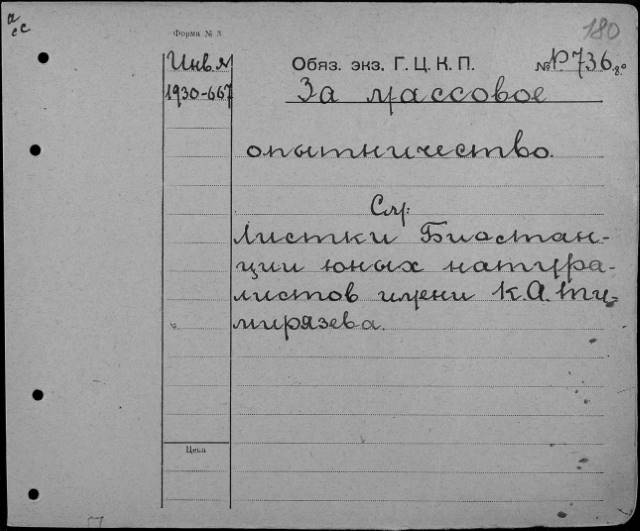 180
Форма № 3
Инв. №
1930-667
Обяз. экз. Г. Ц. К. П.
№ Р736 8°
За массовое
опытничество.
См:
Листки Биостан-
ции юных натура-
листов имени К.А. Ти-
мирязева.
Цена